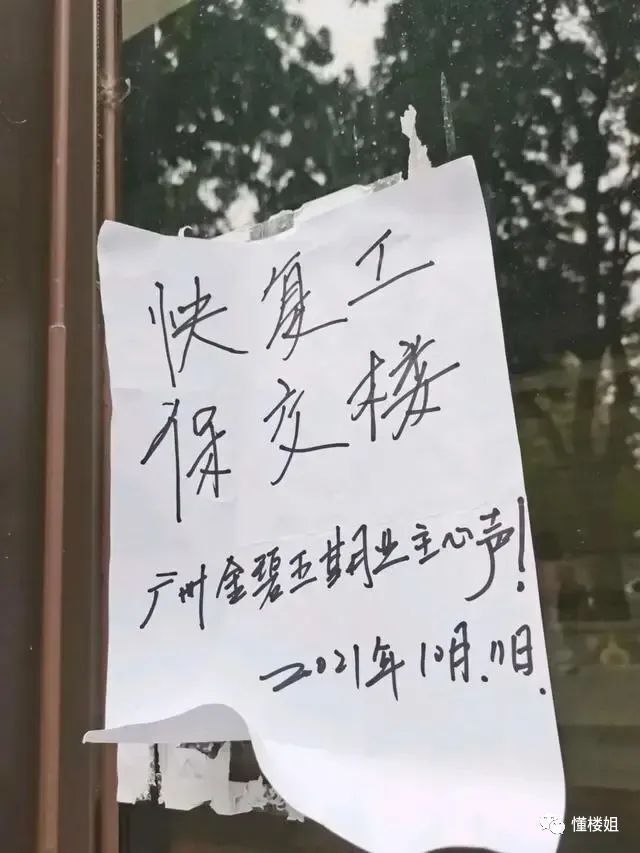 快复工
保交楼
广州金碧五期业主心声!
2021年10月11日.
懂楼姐